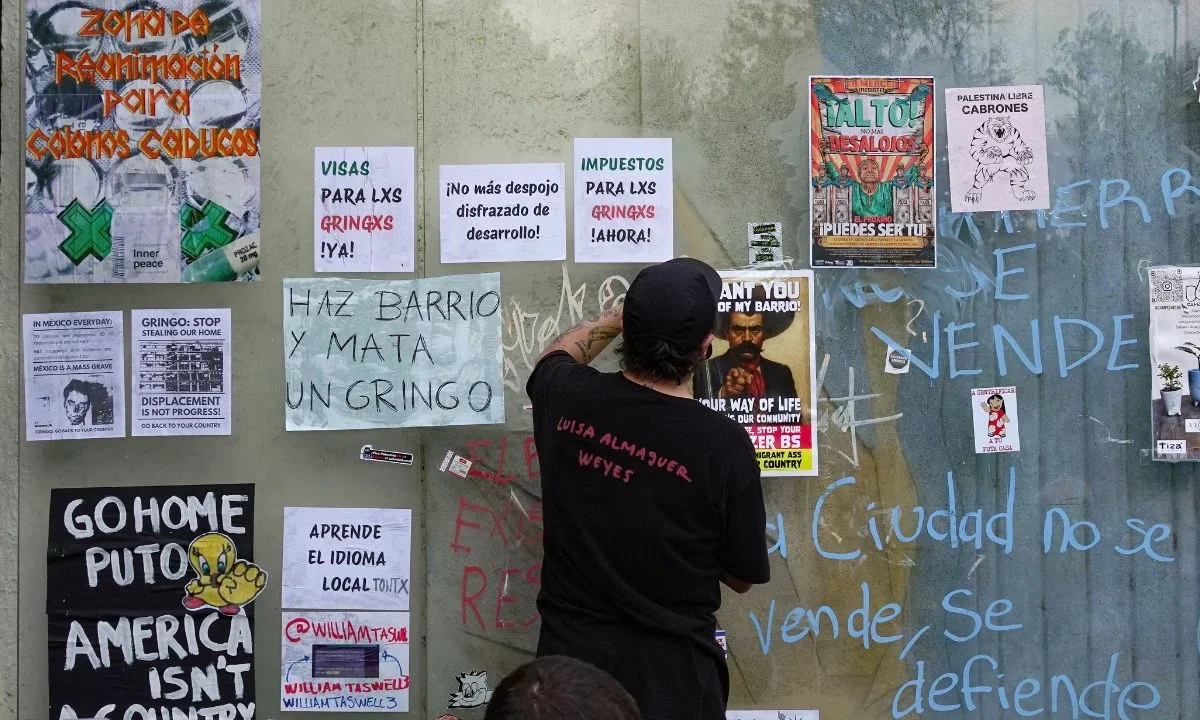 ZONA DE
REANIMACIÓN
PARA
COLONOS CADUCOS
PROZAC
20 mg
Inner
peace
VISAS
PARA LXS
GRINGXS
!YA!
¡No más despojo
disfrazado de
desarrollo!
IMPUESTOS
PARA LXS
GRINGXS
!AHORA!
LA MERCED
RESISTE
¡ALTO!
NO MÁS
DESALOJOS
EL PRÓXIMO
¡PUEDES SER TU!
PALESTINA LIBRE
CABRONES
IN MÉXICO EVERYDAY:
MÉXICO IS A MASS GRAVE
GRINGO: GO BACK TO YOUR COUNTRY
GRINGO: STOP
STEALING OUR HOME
DISPLACEMENT
IS NOT PROGRESS!
GO BACK TO YOUR COUNTRY
HAZ BARRIO
Y MATA
UN GRINGO
ANT YOU
OF MY BARRIO!
OUR WAY OF LIFE
S OUR COMMUNITY
E, STOP YOUR
ZER BS
MIGRANT ASS
COUNTRY
LUISA ALMAGUER
WEYES
SE
VENDE
A GENTRIFICAR
A TU
PUTA CASA
Tiza
GO HOME
PUTO
AMERICA
ISN'T
A COUNTRY
APRENDE
EL IDIOMA
LOCAL TONTX
@WILLIAMTASWELL
WILLIAM TASWELL3
WILLIAMTASWELL3
a Ciudad no se
vende, se
defiende